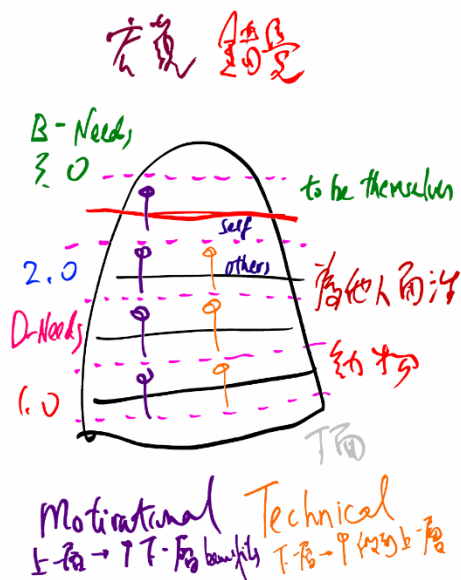 宏觀 錯覺
B-Needs
3.0
to be themselves
self
2.0
others
為他人而活
D-Needs
1.0
下面
Motivational Technical
上一層→↑下一層benefits 下一層→↑做到上一層